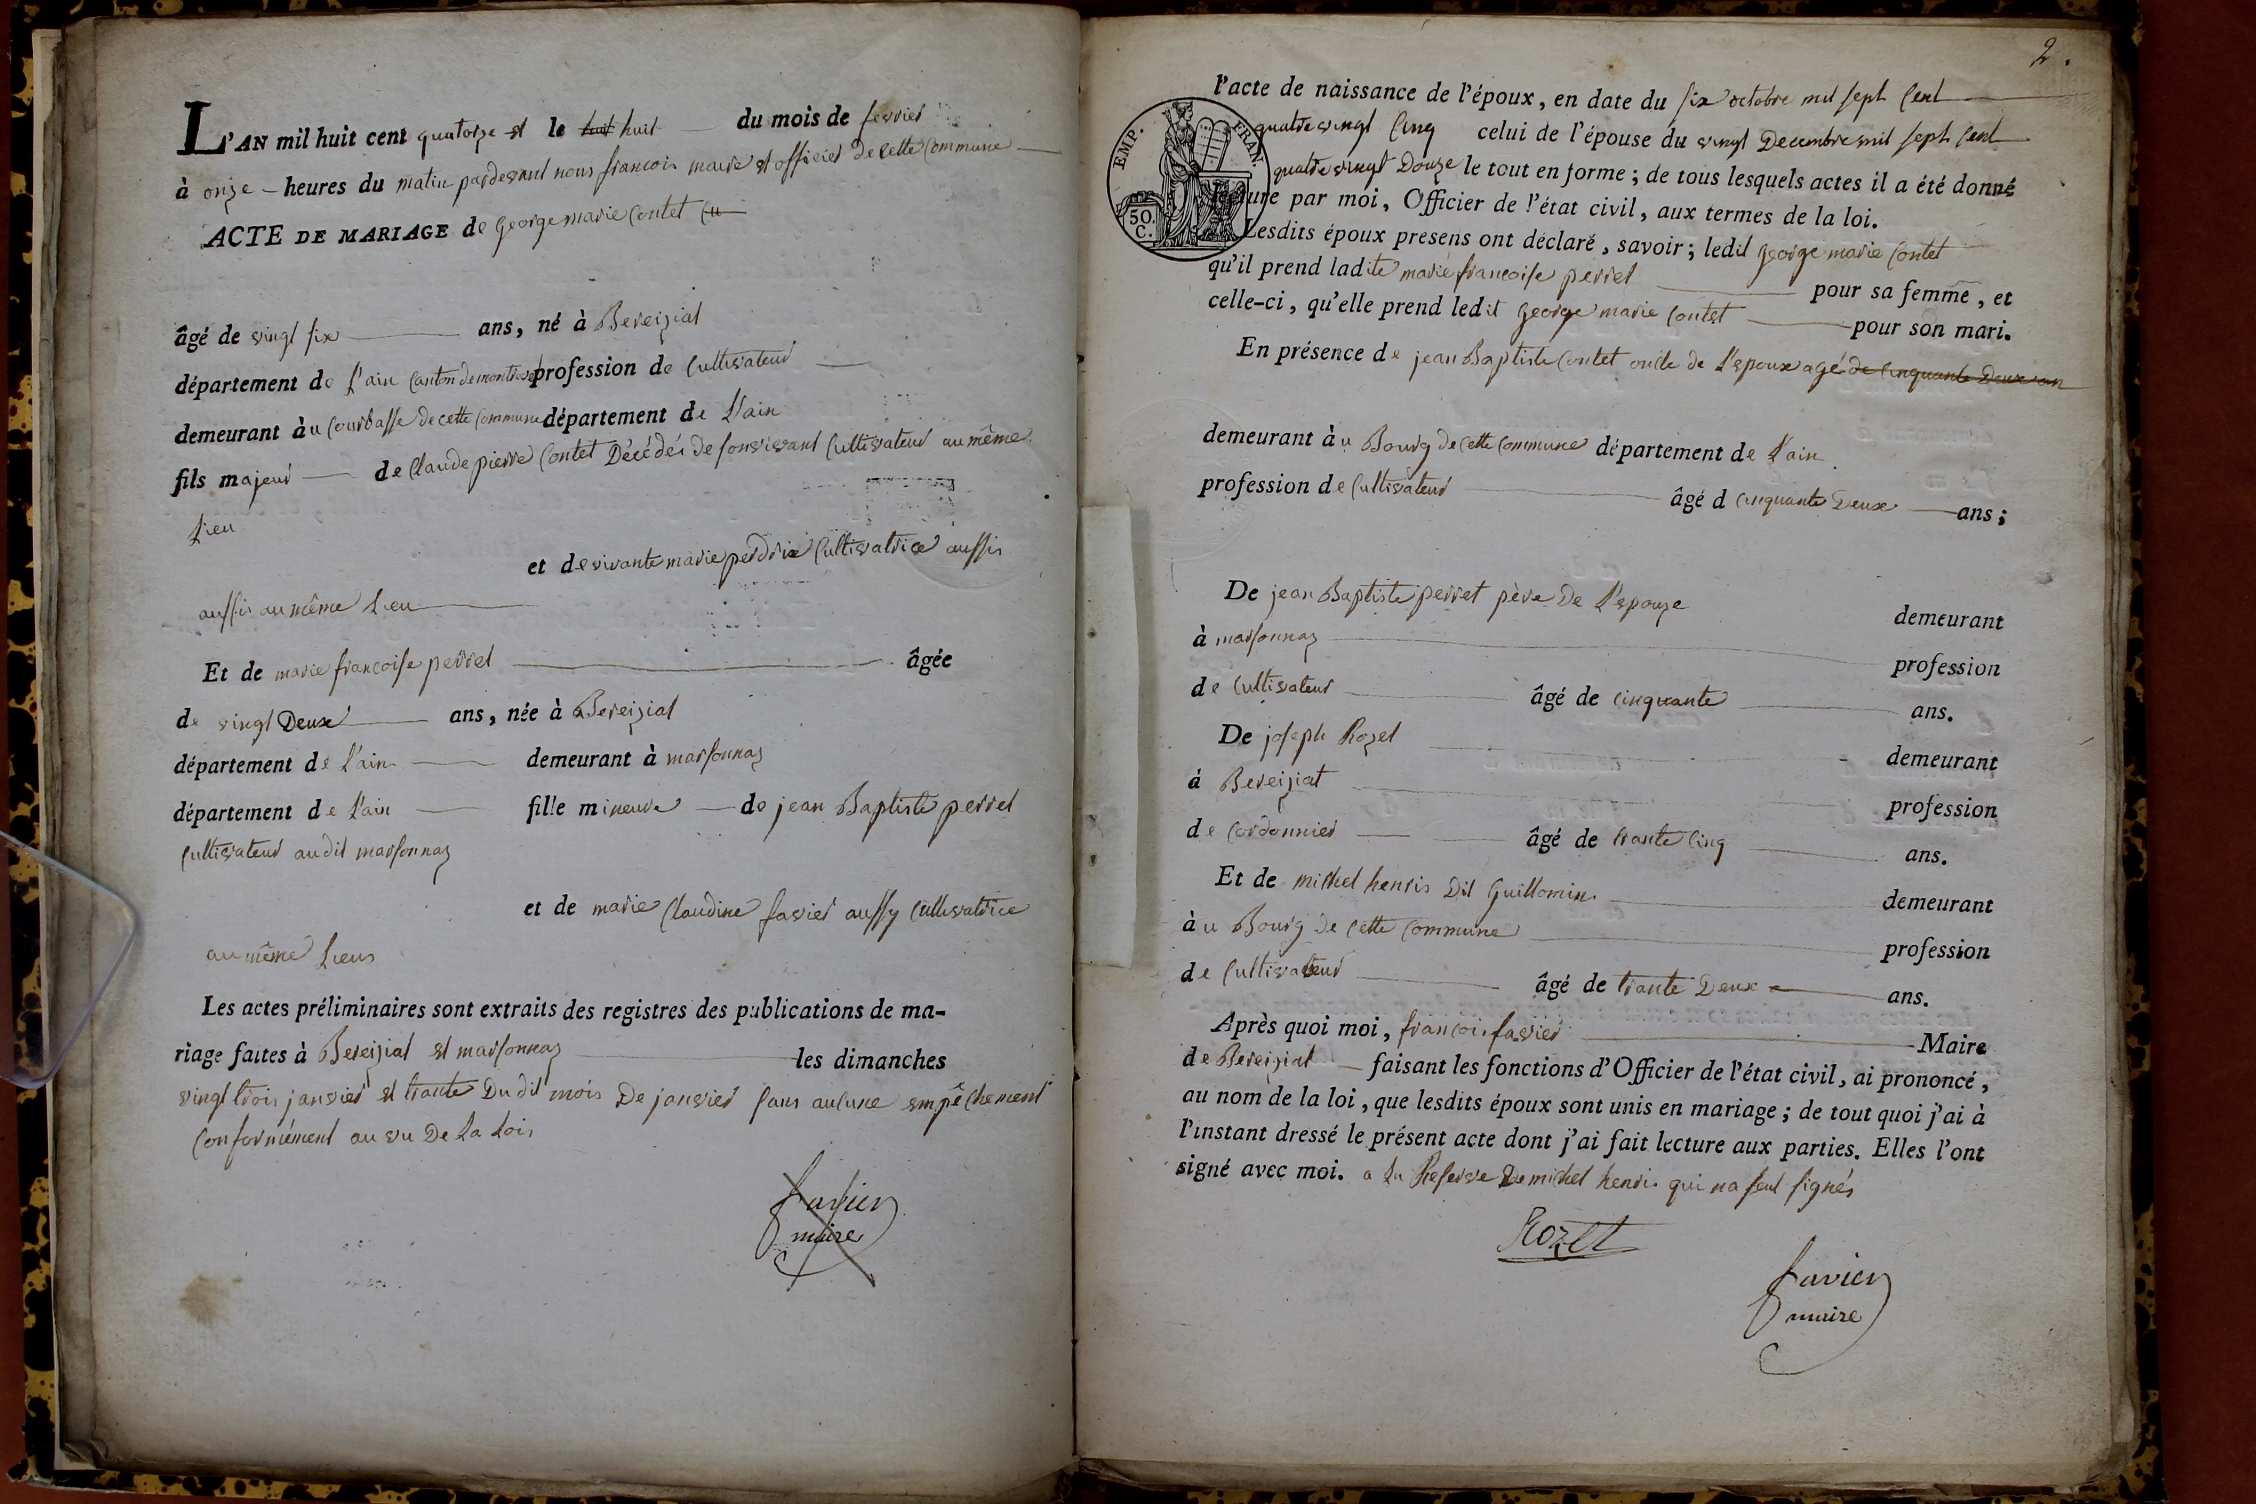 L'AN mil huit cent quatorze et le huit huit du mois de fevrier
à onze heures du matin pardevant nous francois maire et officier de cette Commune
ACTE DE MARIAGE de george marie Contet Cu
âgé de vingt six ans, né à Bereiziat
département de L'ain Canton de montrevel profession de Cultivateur
demeurant àu Courbasse de cette Commune département de L'ain
fils majeur de Claude pierre Contet Décédés de sonvivant Cultivateur au même
Lieu
et de vivante marie perdrix Cultivatrice aussis
aussis au même Lieu
Et de marie francoise perret âgée
de vingt Deux ans, née à Bereiziat
département de L'ain demeurant à marsonnaz
département de L'ain fille mineure de jean Baptiste perret
Cultivateur audit marsonnaz
et de marie Claudine favier aussy Cultivatrice
au même Lieus
Les actes préliminaires sont extraits des registres des publications de ma-
riage faites à Bereiziat et marsonnaz les dimanches
vingt trois janvier et trante Dudit mois De janvier sans aucune empêchement
Conformément au vu De La Lois
favier
maire
2.
l'acte de naissance de l'époux, en date du six octobre mil sept Cent
quatre vingt Cinq celui de l'épouse du vingt Decembre mil sept Cent
quatre vingt Douze le tout en forme; de tous lesquels actes il a été donné
lecture par moi, Officier de l'état civil, aux termes de la loi.
EMP. FRAN.
50.
C.
Lesdits époux présens ont déclaré, savoir; ledit george marie Contet
qu'il prend ladite marie francoise perret pour sa femme, et
celle-ci, qu'elle prend ledit george marie Contet pour son mari.
En présence de jean Baptiste Contet oncle de L'epoux agé de Cinquante Deux an
demeurant àu Bourg de cette Commune département de L'ain
profession de Cultivateur âgé d Cinquante Deux ans;
De jean Baptiste perret père De L'epouze demeurant
à marsonnaz profession
de Cultivateur âgé de Cinquante ans.
De joseph Rozet demeurant
à Bereiziat profession
de Cordonnier âgé de trante Cinq ans.
Et de michel henris Dit Guillomin demeurant
àu Bourg de Cette Commune profession
de Cultivateur âgé de trante Deux ans.
Après quoi moi, francois favier Maire
de Bereiziat faisant les fonctions d'Officier de l'état civil, ai prononcé,
au nom de la loi, que lesdits époux sont unis en mariage; de tout quoi j'ai à
l'instant dressé le présent acte dont j'ai fait lecture aux parties. Elles l'ont
signé avec moi. a La Reserve De michel henris qui na seut signés
Rozet
favier
maire